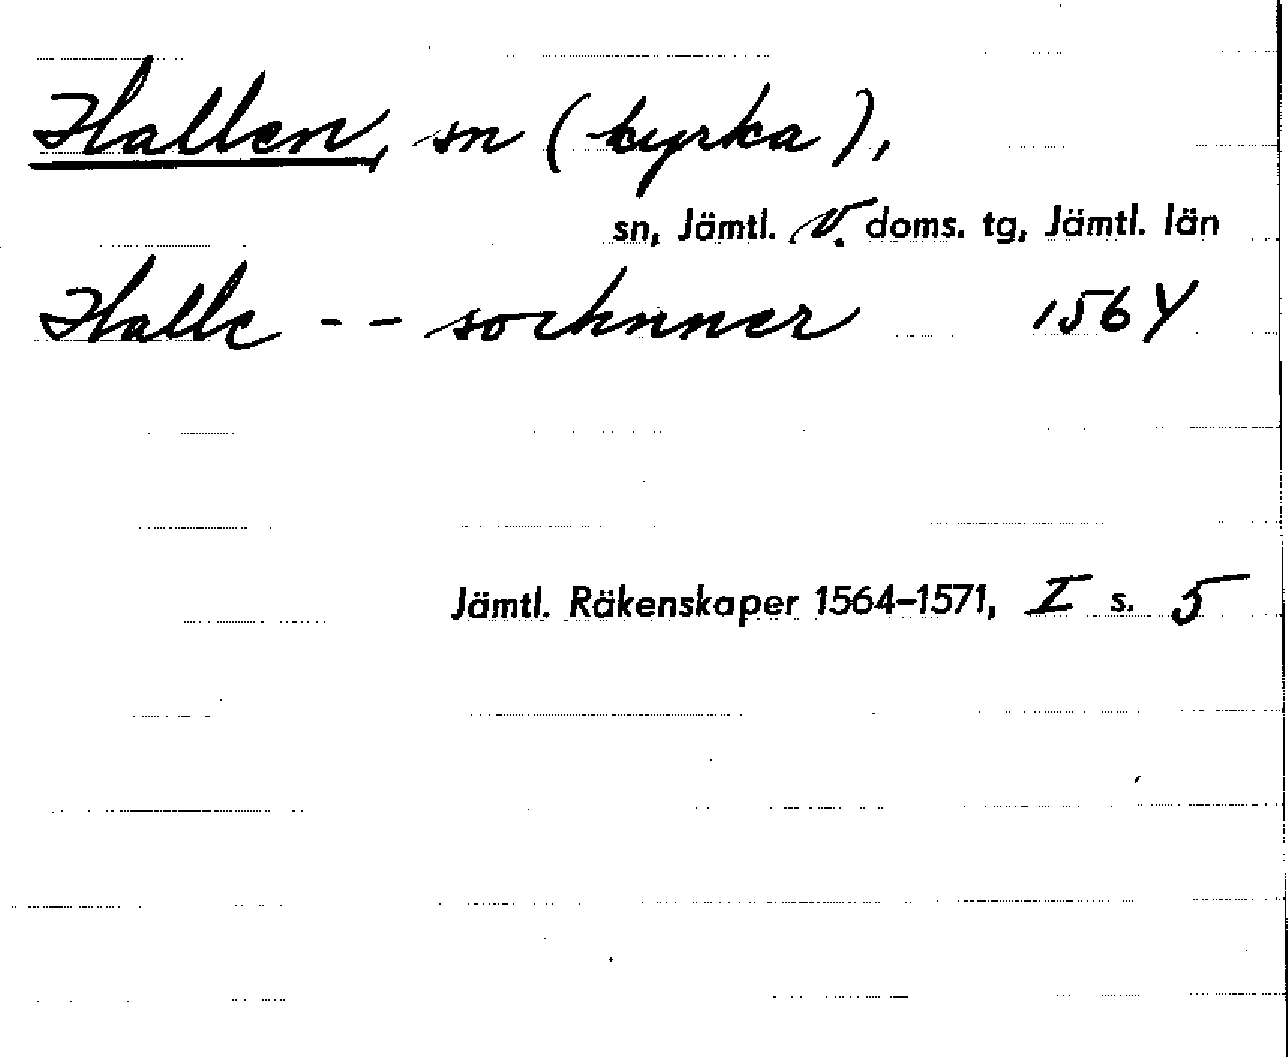 Hallen, sn (kyrka),
sn, Jämtl. V. doms. tg, Jämtl. län
Halle -- sochnner 1564
Jämtl. Räkenskaper 1564-1571, I s. 5